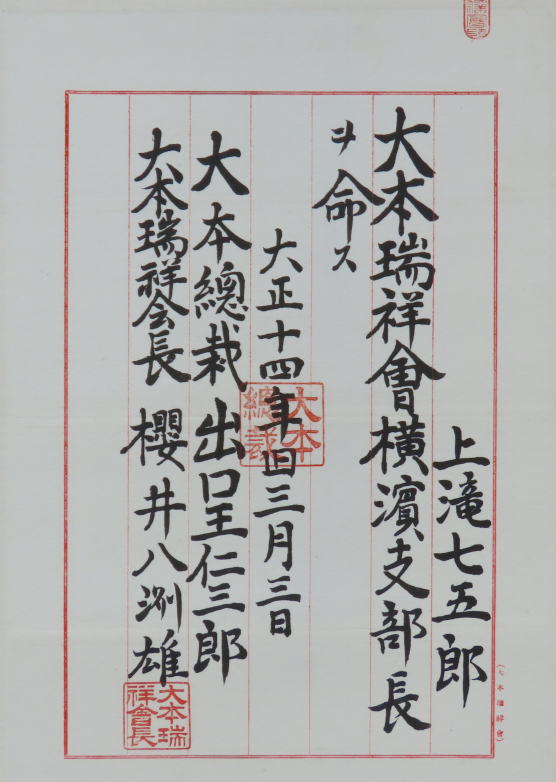 上滝七五郎
大本瑞祥會横濵支部長
ヲ命ス
大正十四年旧三月三日
大本總裁 出口王仁三郎
大本瑞祥会長 櫻井八洲雄
大本總裁
大本瑞祥會長
(大本瑞祥會)